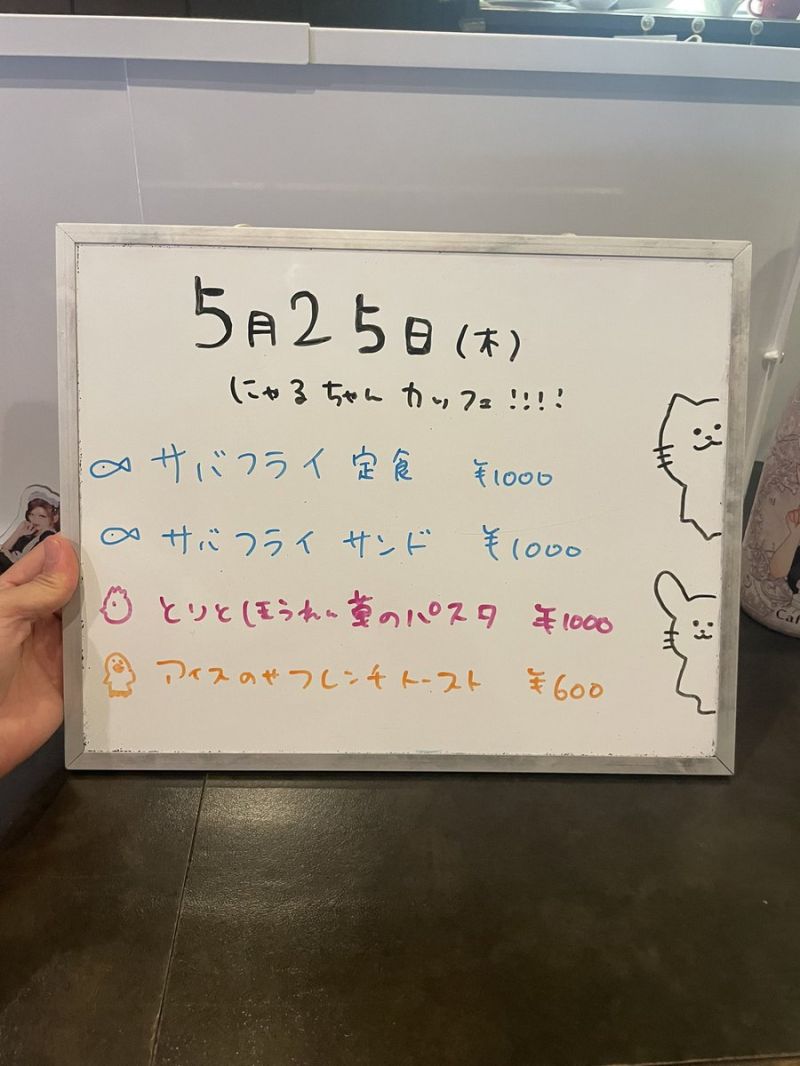 5月25日(木)
にゃるちゃん カッフェ!!!!
サバフライ定食 ¥1000
サバフライサンド ¥1000
とりとほうれん草のパスタ ¥1000
アイスのせフレンチトースト ¥600
Caf